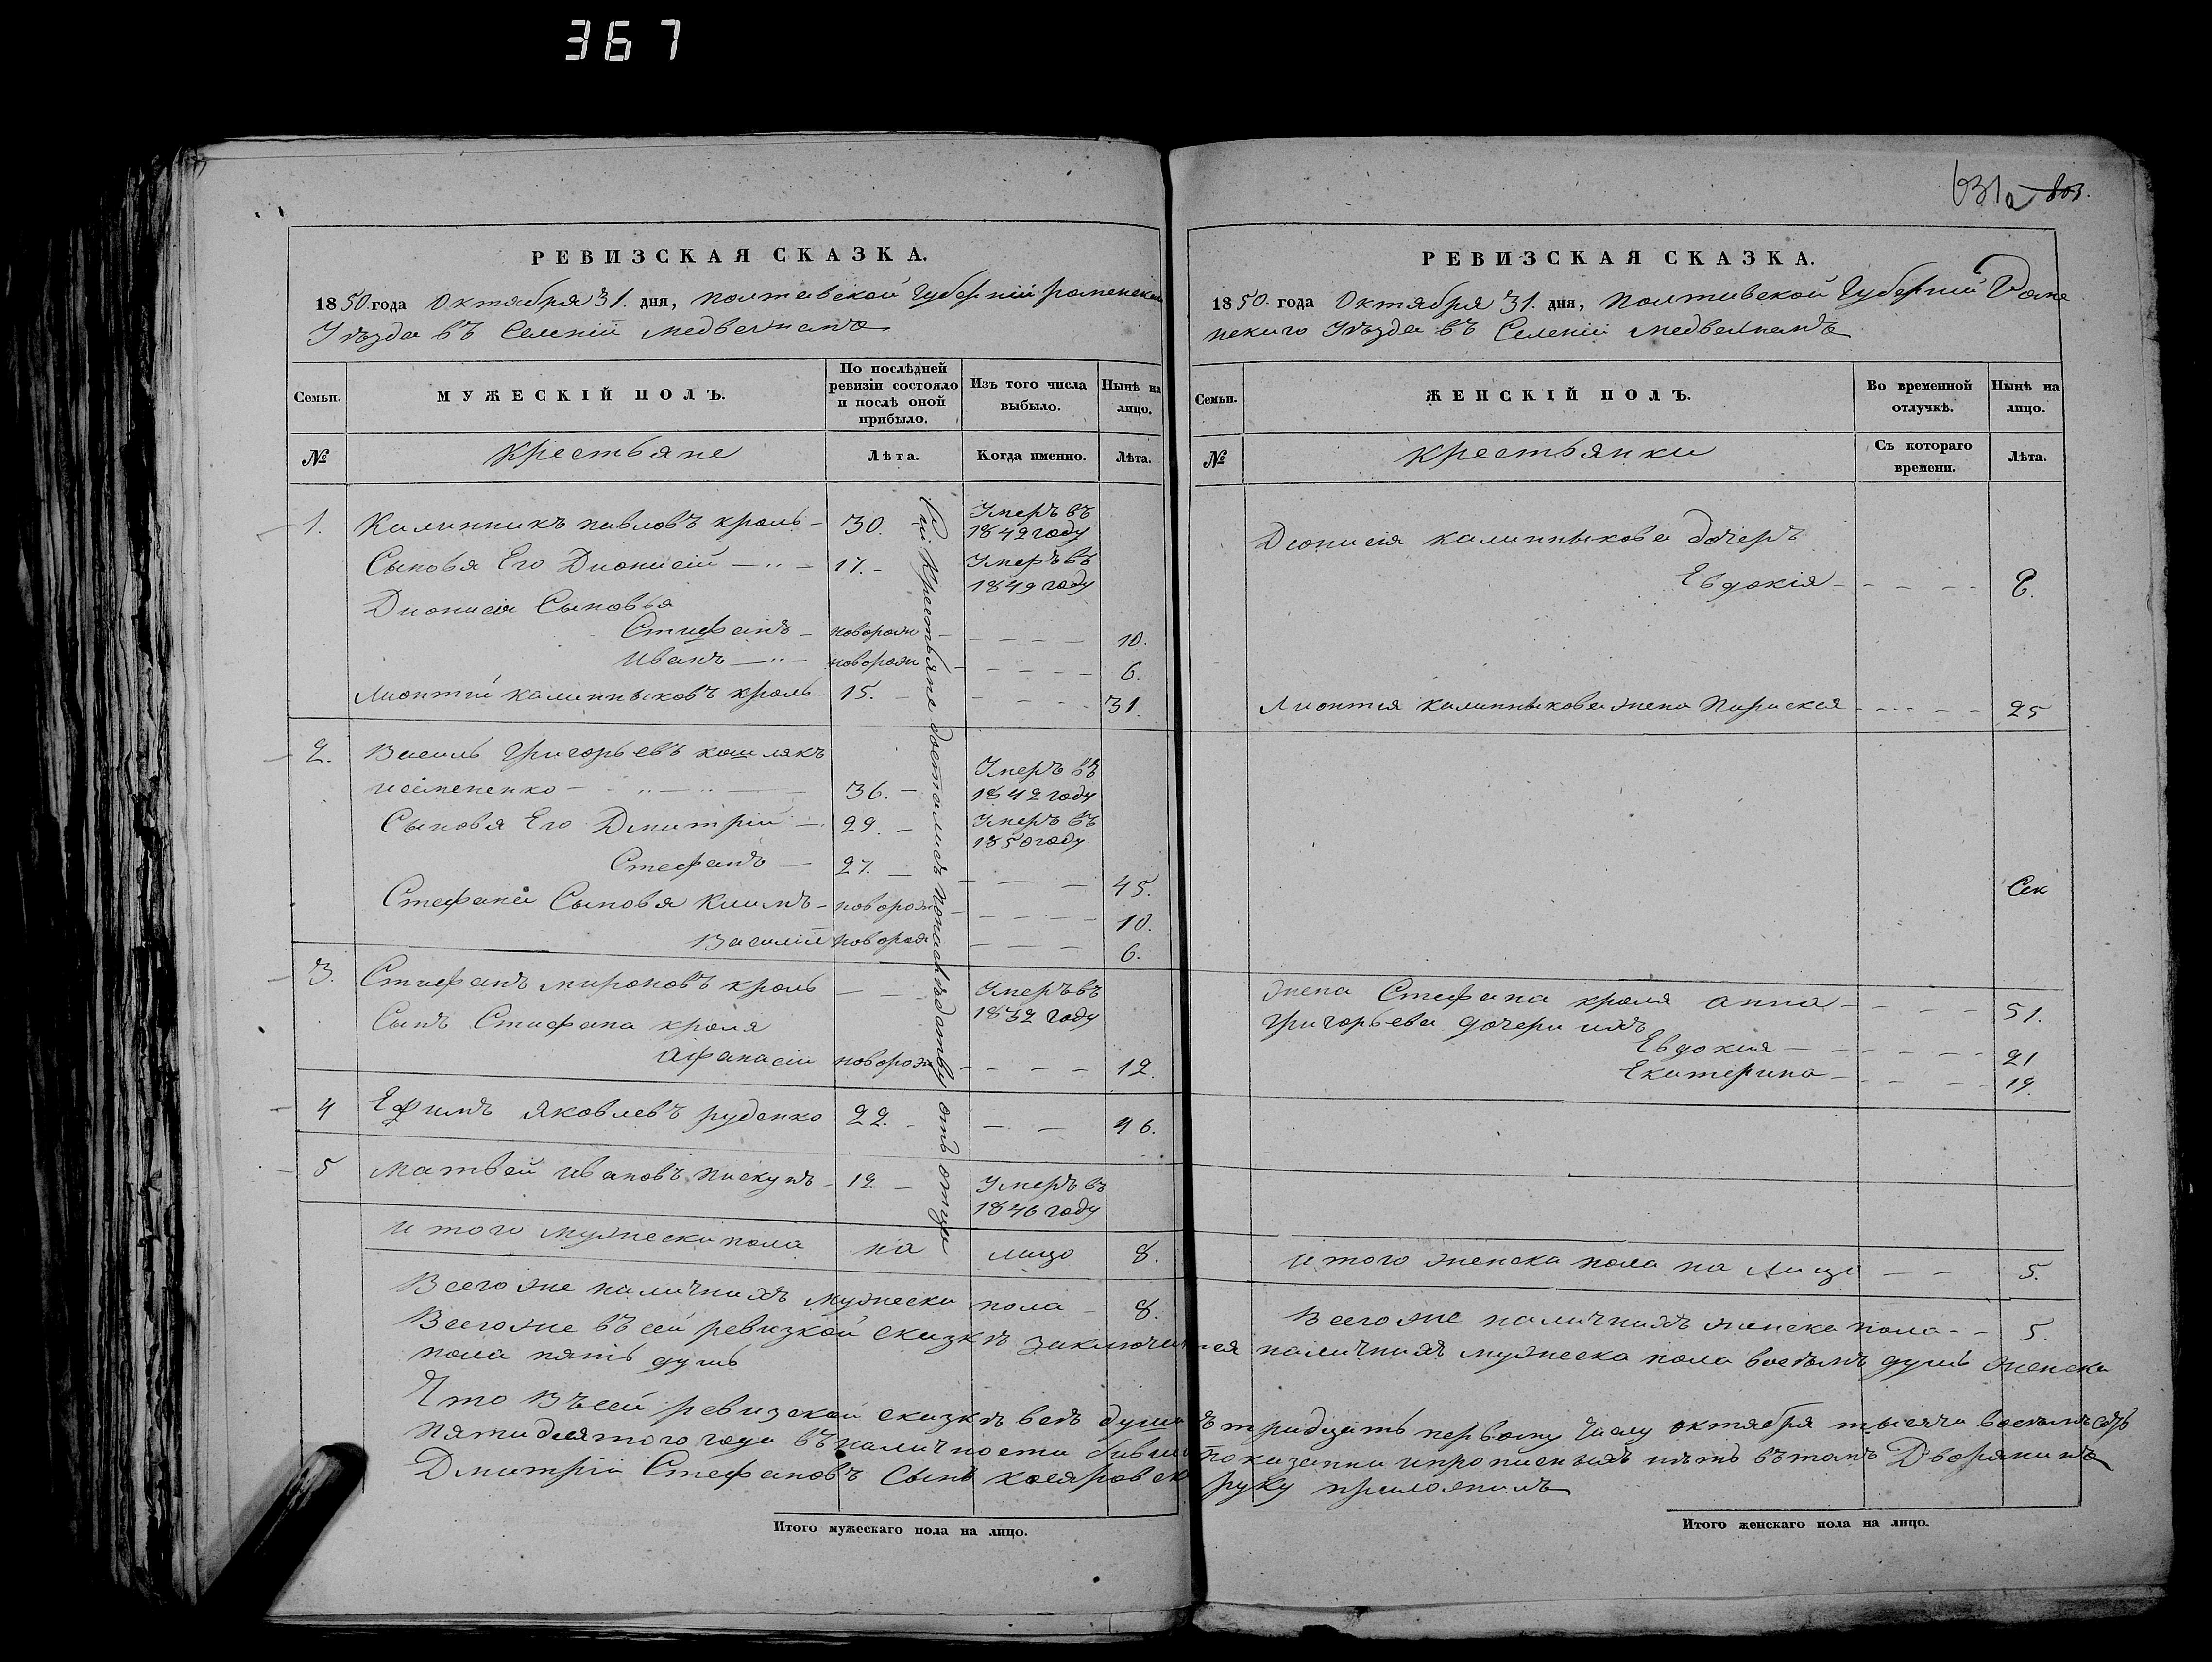 367
631а 803.
РЕВИЗСКАЯ СКАЗКА.
1850 года Октября 31. дня, полтавской Губерніи роменскаго
Уѣзда въ Селеніи медвежемъ
Семьи.
МУЖЕСКІЙ ПОЛЪ.
По послѣдней ревизіи состояло и послѣ оной прибыло.
Изъ того числа выбыло.
Нынѣ на лицо.
№
крестьяне
Лѣта.
Когда именно.
Лѣта.
Сіи Крестьяне достались понаслѣдству отъ отца
1. Калинникъ павловъ кроль - 30. - Умеръ въ 1842 году
Сыновья Его Дионисій - " - 17. - Умеръ въ 1849 году
Дионисія Сыновья
Стифанъ - новорож - - - - 10.
Иванъ - " - новорож - - - - 6.
Лионтій калинниковъ кроль - 15. - - - - 31.
2. Василь Григорьевъ кошлякъ
исімененко - " - " - 36. - Умеръ въ 1842 году
Сыновья Его Дмитрій - 29. - Умеръ въ 1850 году
Стефанъ - 27. - - - - 45.
Стефана Сыновья Климъ - новорож - - - - 10.
Василій новорож - - - 6.
3. Стифанъ мироновъ кроль - - Умеръ въ 1832 году
Сынъ Стифана кроля
Афанасій новорож - - - - 12.
4 Ефимъ яковлевъ руденко 22. - - - 46.
5 Матвей ивановъ пискунъ - 12 - Умеръ въ 1846 году
итого мужеска пола на лицо 8.
Всего же наличныхъ мужеска пола - 8.
РЕВИЗСКАЯ СКАЗКА.
1850. года Октября 31. дня, Полтавской Губерніи Роме
нскаго Уѣзда въ Селеніи медвежемъ
Семьи.
ЖЕНСКІЙ ПОЛЪ.
Во временной отлучкѣ.
Нынѣ на лицо.
№
крестьянки
Съ котораго времени.
Лѣта.
Дионисія калинникова дочерь
Евдокія - - - - 8.
Лионтія калинникова жена Параска - - - - 25
Сек
Жена Стефана кроля анна - - - - 51.
григорьева дочери ихъ
Евдокия - - - - 21
Екатерина - - - - 19.
итого женска пола на лицо - - 5.
Всего же наличныхъ женска пола - - 5.
Всего же въ сей ревизкой сказкѣ заключается наличныхъ мужеска пола восемь душъ женска
пола пять душъ
Что въ сей ревизской сказкѣ все души къ тридцать первому числу октября тысяча восемь сотъ
пятидесятого года въ наличности бывшие показанны и прописныхъ нѣтъ въ томъ Дворянинъ
Дмитрій Стефановъ Сынъ руку приложилъ
Итого мужескаго пола на лицо.
Итого женскаго пола на лицо.